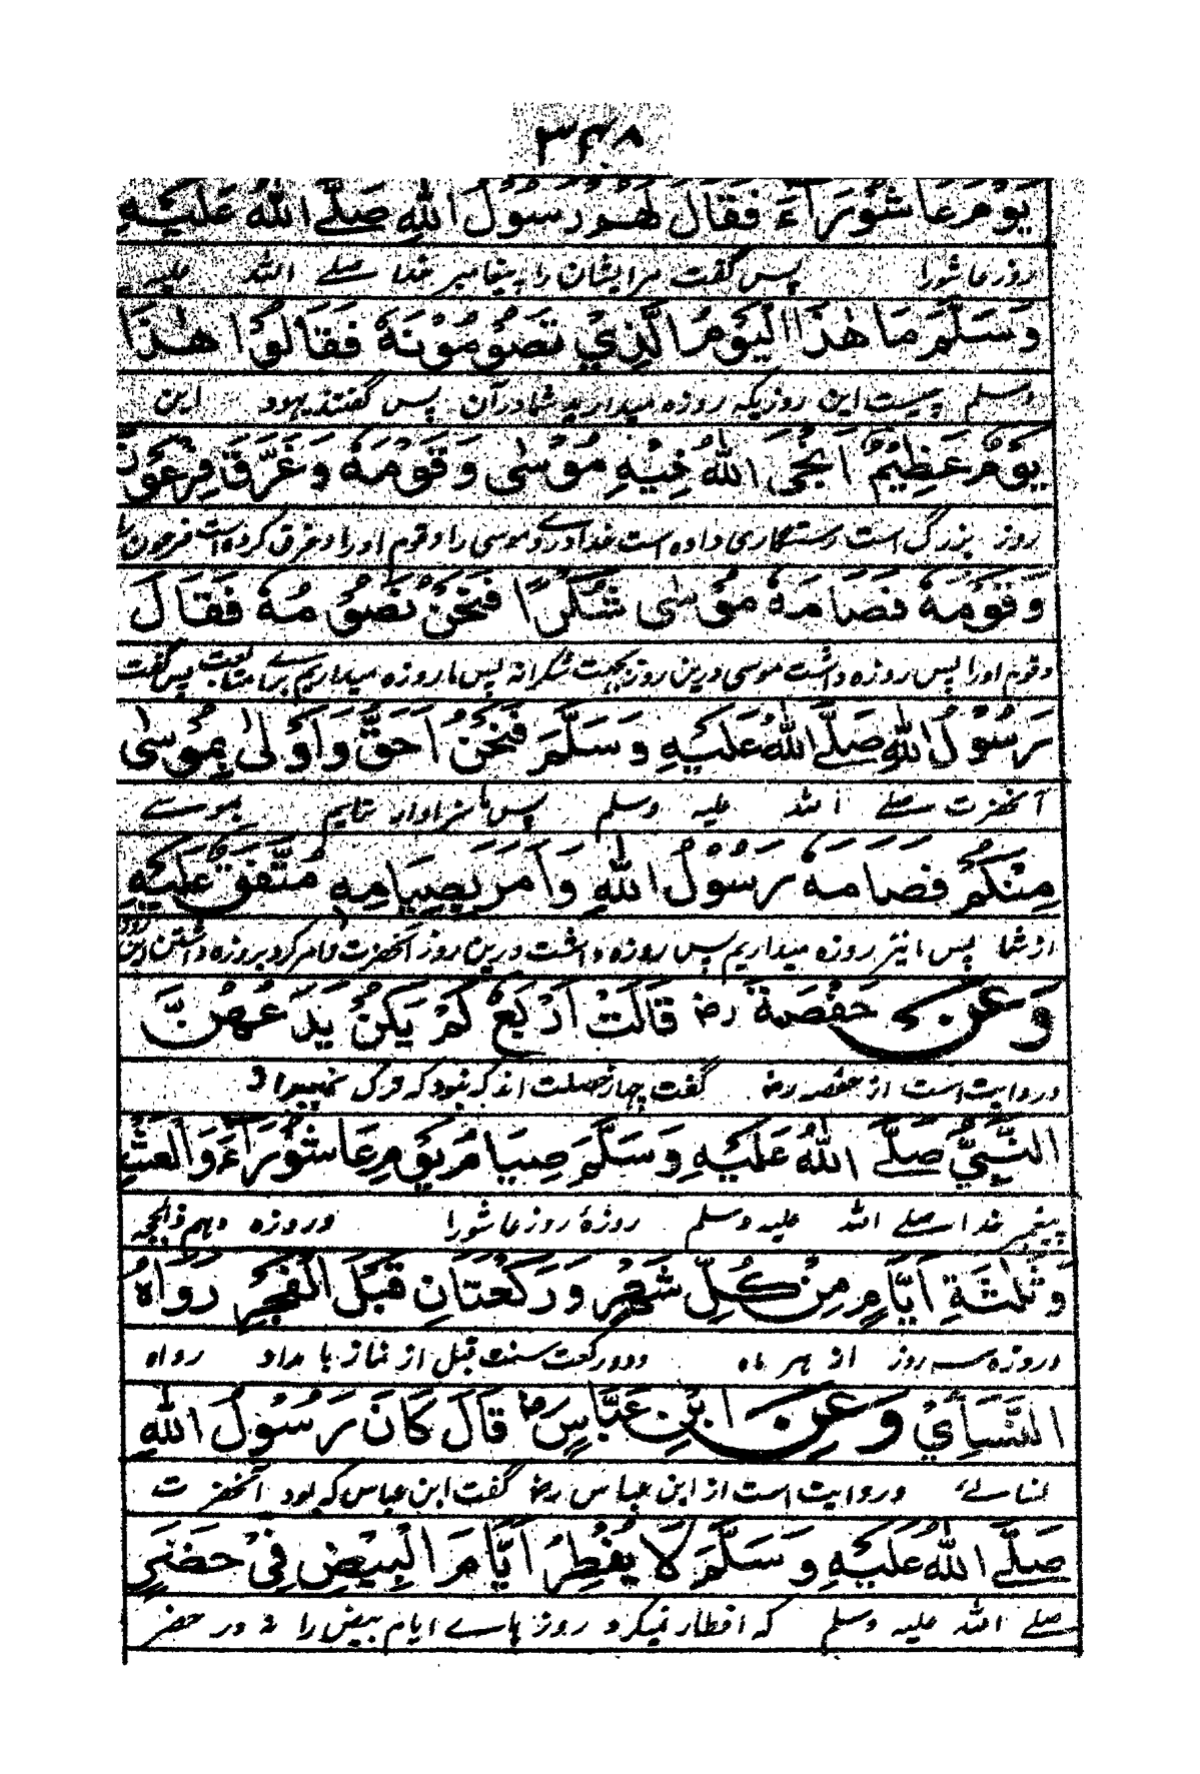 ۳۴۸
يَوْمَ عَاشُوْرَاءَ فَقَالَ لَهُمْ رَسُوْلُ اللهِ صَلَّے اللهُ عَلَيْهِ
روز عاشورا پس گفت مر ایشان را پیغامبر خدا صلے اللہ علیہ
وَسَلَّمَ مَا هٰذَا الْيَوْمُ الَّذِيْ تَصُوْمُوْنَهٗ فَقَالُوْا هٰذَا
وسلم چیست این روزیکہ روزہ میدارید شما درآن پس گفتند یہود این
يَوْمٌ عَظِيْمٌ اَنْجَى اللهُ فِيْهِ مُوْسٰى وَقَوْمَهٗ وَغَرَّقَ فِرْعَوْنَ
روز بزرگ است رستگاری داده است خدا درو موسی را و قوم اورا و غرق کرده است فرعون را
وَقَوْمَهٗ فَصَامَهٗ مُوْسٰى شُكْرًا فَنَحْنُ نَصُوْمُهٗ فَقَالَ
وقوم اورا پس روزه داشت موسی درین روز بجہت شکرانہ پس ما روزه میداریم برائے متابعت پس گفت
رَسُوْلُ اللهِ صَلَّے اللهُ عَلَيْهِ وَسَلَّمَ فَنَحْنُ اَحَقُّ وَاَوْلٰى بِمُوْسٰى
آنحضرت صلے اللہ علیہ وسلم پس ما سزاوار تایم بموسے
مِنْكُمْ فَصَامَهٗ رَسُوْلُ اللهِ وَاَمَرَ بِصِيَامِهٖ مُتَّفَقٌ عَلَيْهِ
از شما پس ما نیز روزه میداریم پس روزه داشت درین روز آنحضرت و امر کرد بروزه داشتن این روز
وَعَنْ حَفْصَةَ رض قَالَتْ اَرْبَعٌ لَمْ يَكُنْ يَدَعُهُنَّ
وروایت است از حفصہ رض گفت چہار خصلت اند کہ نبود کہ ترک نمیدا
النَّبِيُّ صَلَّے اللهُ عَلَيْهِ وَسَلَّمَ صِيَامُ يَوْمِ عَاشُوْرَاءَ وَالْعَشْرِ
پیغمبر خدا صلے اللہ علیہ وسلم روزۂ روز عاشورا وروزہ دہم ذالحجہ
وَثَلٰثَةِ اَيَّامٍ مِنْ كُلِّ شَهْرٍ وَرَكْعَتَانِ قَبْلَ الْفَجْرِ رَوَاهُ
وروزہ سہ روز از ہر ماہ ودو رکعت سنت قبل از نماز بامداد رواہ
النَّسَائِيْ وَعَنِ ابْنِ عَبَّاسٍ رض قَالَ كَانَ رَسُوْلُ اللهِ
لنسائے وروایت است از ابن عباس رض گفت ابن عباس کہ بود آنحضرت
صَلَّے اللهُ عَلَيْهِ وَسَلَّمَ لَا يُفْطِرُ اَيَّامَ الْبِيْضِ فِيْ حَضَرٍ
صلے اللہ علیہ وسلم کہ افطار نمیکرد روز ہاے ایام بیض را در حضر